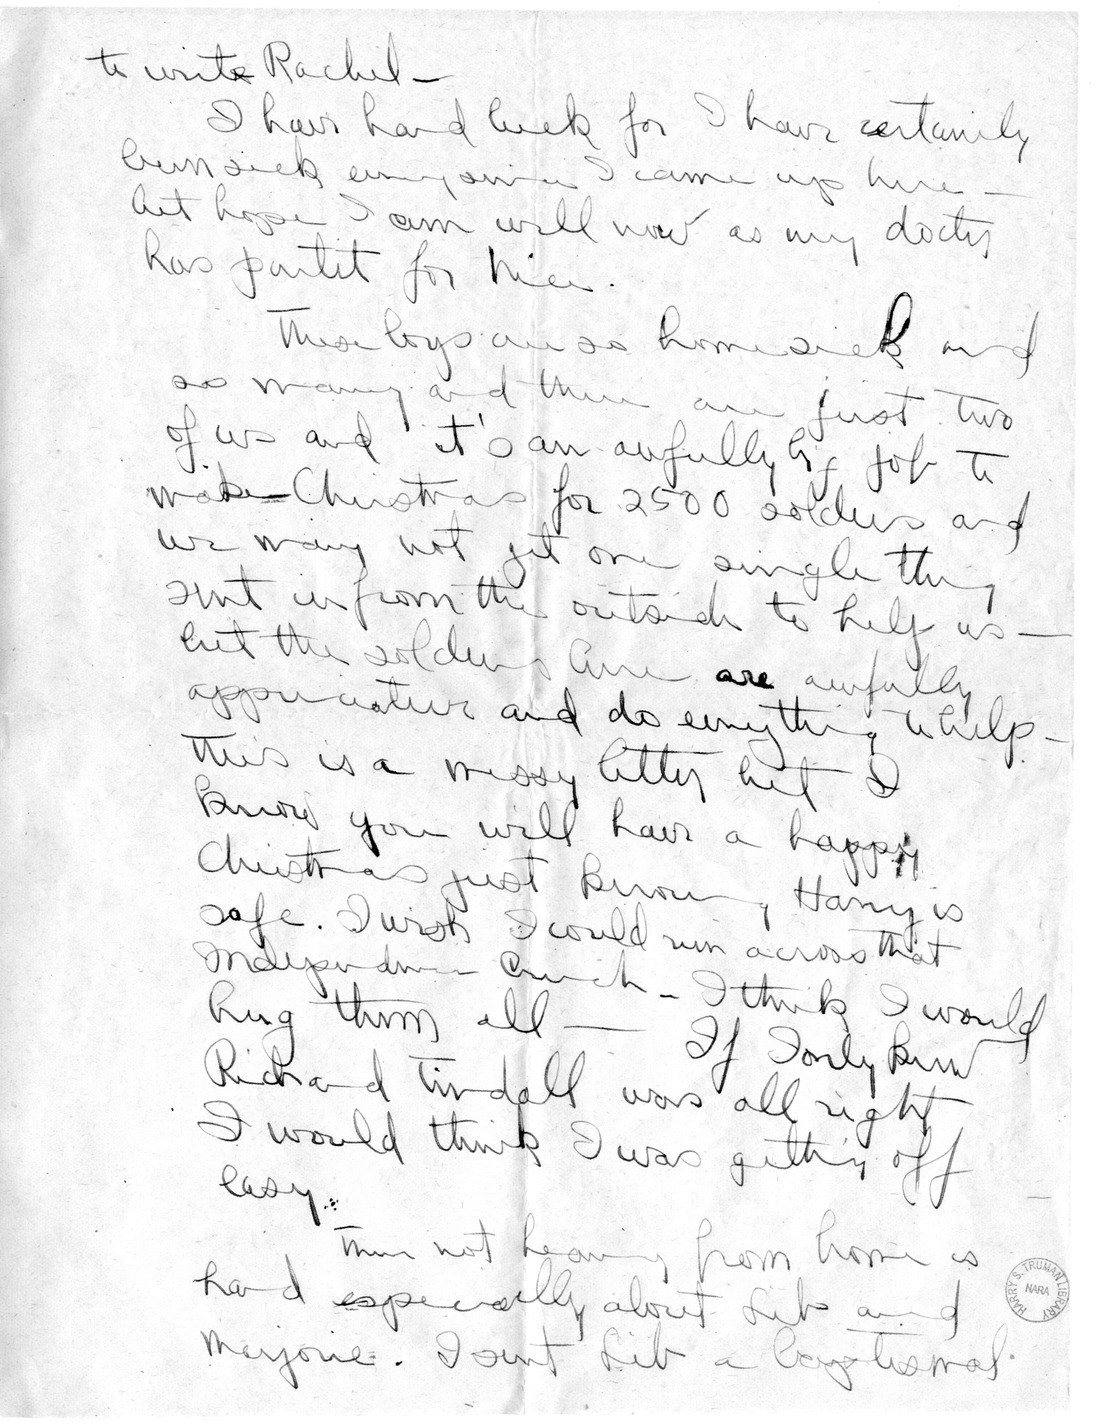 to write Rachel —
I have hard luck for I have certainly
been sick ever since I came up here —
but hope I am well now as my doctor
has parted for Nice.
These boys are so homesick and
so many and there are just two
of us and it's an awfully big job to
make Christmas for 2500 soldiers and
we may not get one single thing
sent in from the outside to help us —
but the soldiers are are awfully
appreciative and do everything to help —
this is a messy letter but I
know you will have a happy
Christmas just knowing Harry is
safe. I wish I could run across that
Independence bunch — I think I would
hug them all — If I only knew
Richard Tindall was all right
I would think I was getting off
easy.
Then not hearing from home is
hard especially about Lib and
Marjorie. I sent Lib a baptismal
HARRY S. TRUMAN LIBRARY
NARA